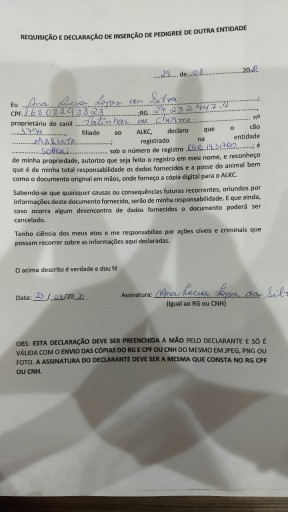 REQUISIÇÃO E DECLARAÇÃO DE INSERÇÃO DE PEDIGREE DE OUTRA ENTIDADE
23 de 08 20
Eu Ana Lucia Lopes da Silva
CPF RG
proprietário do canil de nº
filiado ao ALKC, declaro que o cão
registrado na entidade
SOBRACI sob o número de registro é
de minha propriedade, autorizo que seja feito o registro em meu nome, e reconheço
que é de minha total responsabilidade os dados fornecidos e a posse do animal bem
como o documento original em mãos, onde forneço a cópia digital para o ALKC.
Sabendo-se que quaisquer causas ou consequências futuras recorrentes, oriundos por
informações deste documento fornecido, serão de minha responsabilidade. E que ainda,
caso ocorra algum desencontro de dados fornecidos o documento poderá ser
cancelado.
Tenho ciência dos meus atos e me responsabilizo por ações cíveis e criminais que
possam recorrer sobre as informações aqui declaradas.
O acima descrito é verdade e dou fé
Data: 23/08/20 Assinatura: Ana Lucia Lopes da Silva
(Igual ao RG ou CNH)
OBS: ESTA DECLARAÇÃO DEVE SER PREENCHIDA A MÃO PELO DECLARANTE E SÓ É
VÁLIDA COM O ENVIO DAS CÓPIAS DO RG E CPF OU CNH DO MESMO EM JPEG, PNG OU
FOTO. A ASSINATURA DO DECLARANTE DEVE SER A MESMA QUE CONSTA NO RG CPF
OU CNH.